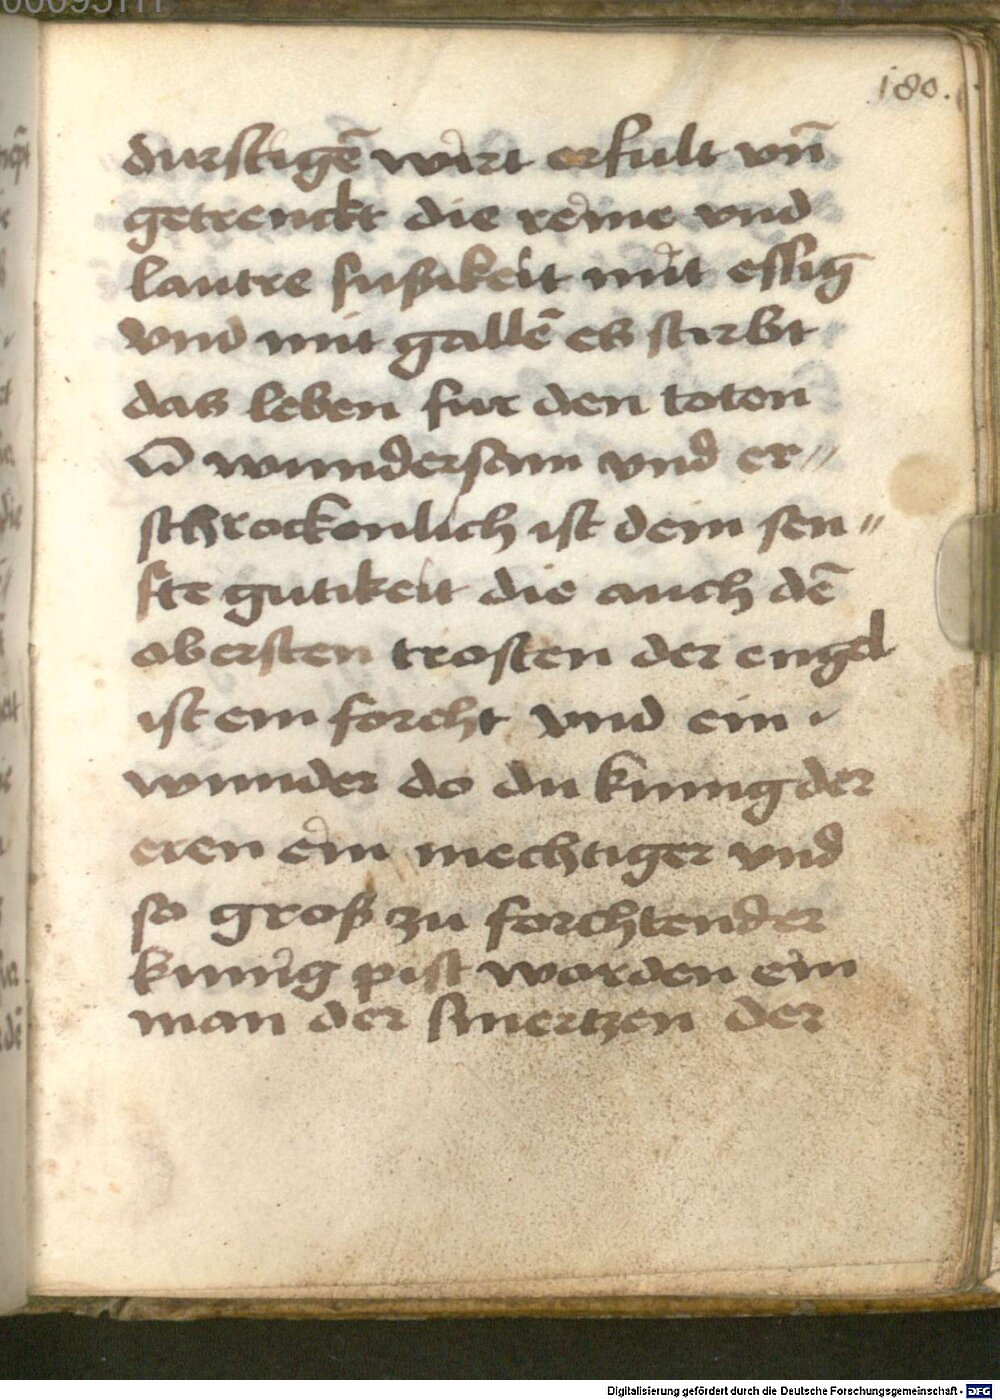 180.
durstigē wirt erfult vn̄
getrenckt die reine vnd
lautre sußikeit mit essig
vnd mit gallē es stirbt
das leben fur den toten
wundersam vnd er〃
schrockenlich ist dem sen〃
fte gutikeit die auch dē
obersten trosten der engel
ist ein forcht vnd ein
wunder do du kunig der
eren ein mechtiger vnd
so groß zu forchtender
kunig pist worden ein
man der smertzen der
Digitalisierung gefördert durch die Deutsche Forschungsgemeinschaft - DFG